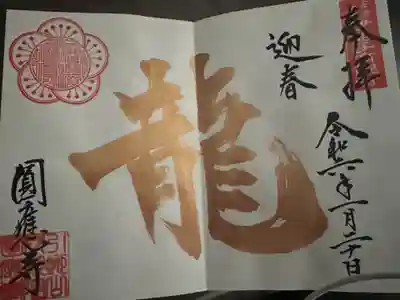 奉拝
迎春
令和六年一月二十日
龍
圓應寺